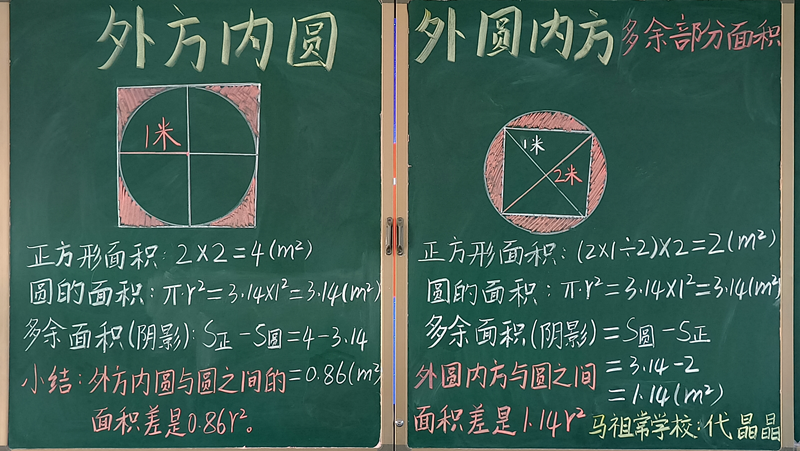 外方内圆
1米
正方形面积:2×2=4(m²)
圆的面积:π·r²=3.14×1²=3.14(m²)
多余面积(阴影):S正-S圆=4-3.14
=0.86(m²)
小结:外方内圆与圆之间的
面积差是0.86r²。
外圆内方 多余部分面积
1米
2米
正方形面积:(2×1÷2)×2=2(m²)
圆的面积:π·r²=3.14×1²=3.14(m²)
多余面积(阴影)=S圆-S正
=3.14-2
=1.14(m²)
外圆内方与圆之间
面积差是1.14r²
马祖常学校:代晶晶